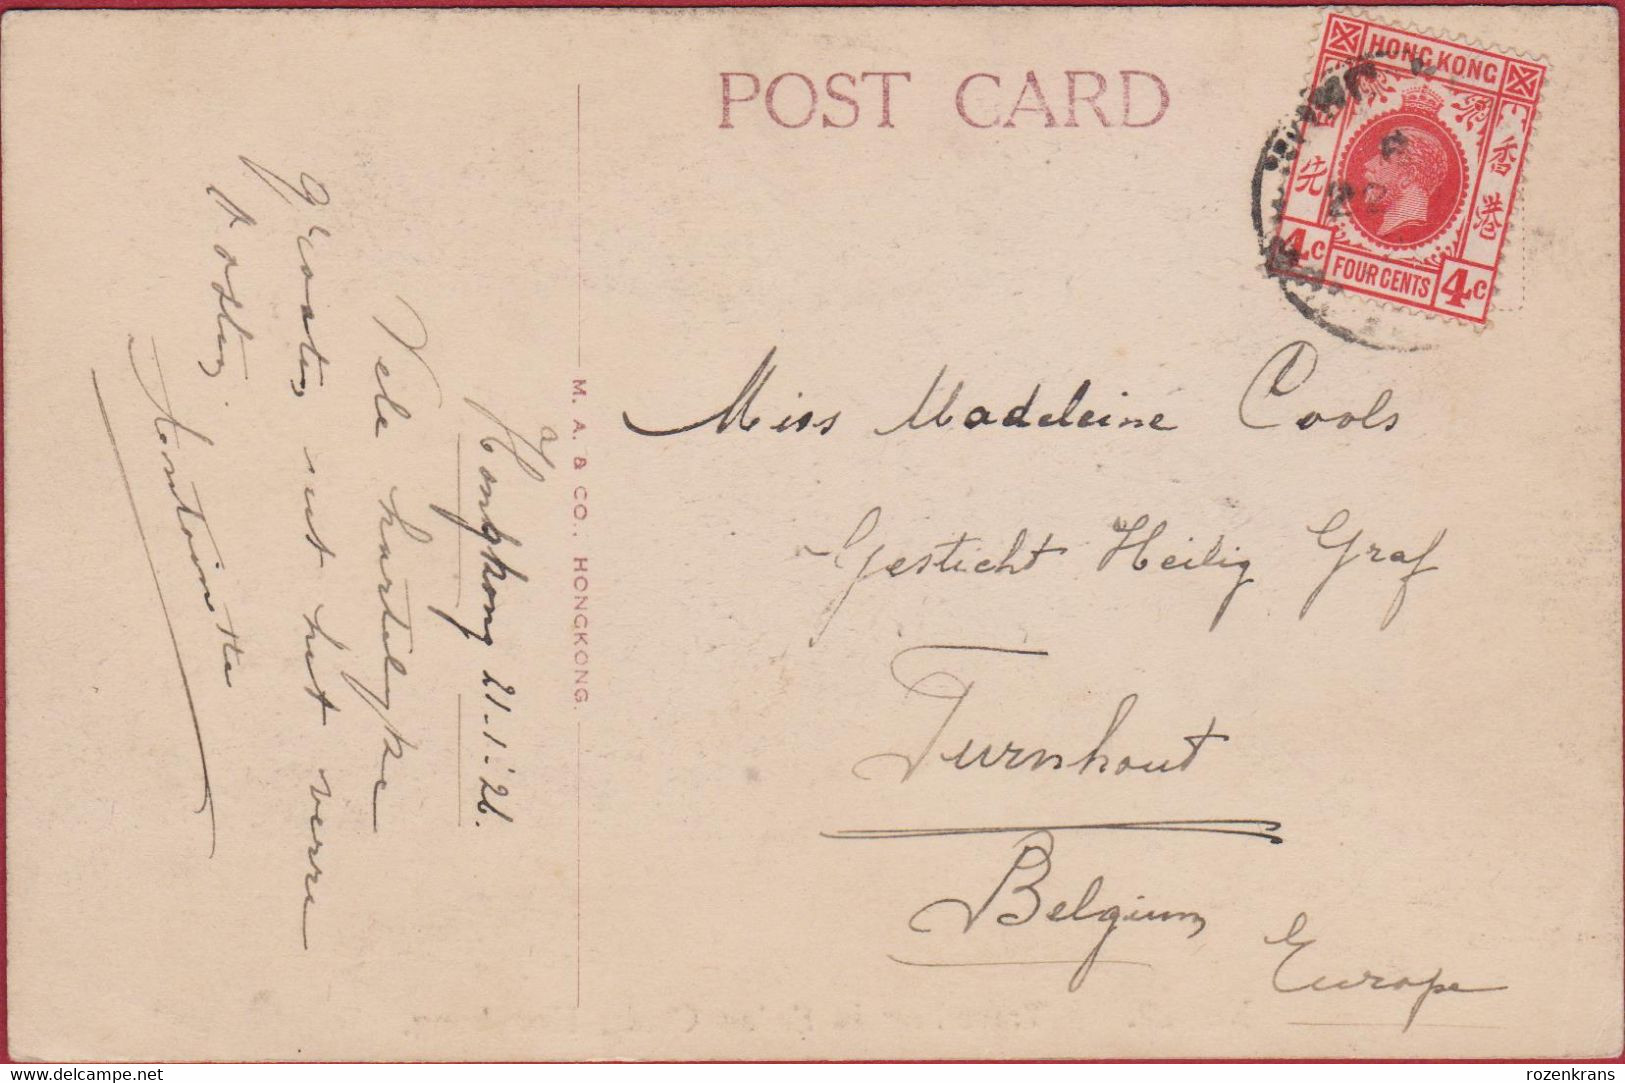 POST CARD
HONG KONG
香港
先
4c
FOUR CENTS
4c
Hongkong 21.1.'26.
Vele hartelyke
groeten, uit het verre
Oosten.
Antoinette
M. A. & CO., HONGKONG.
Miss Madeleine Cools
Gesticht Heilig Graf
Turnhout
Belgium
Europe
delcampe.net
rozenkrans